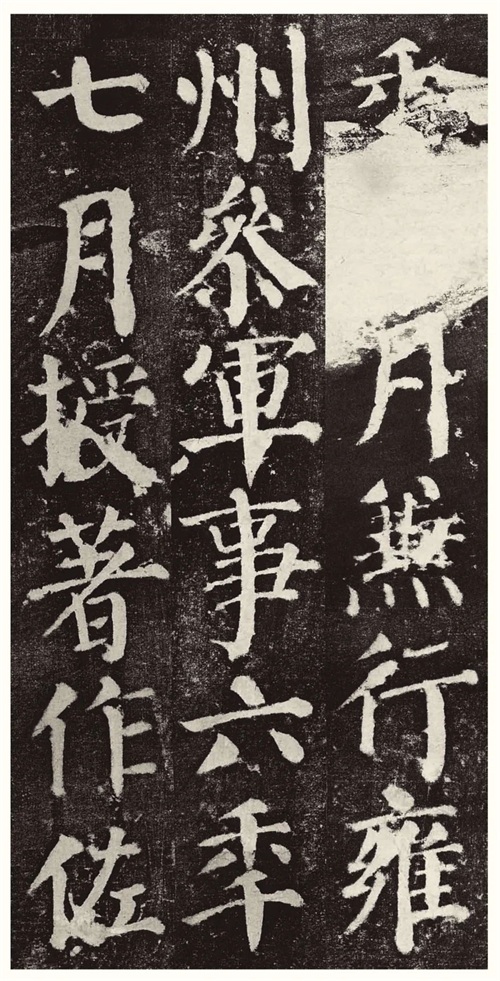 年月兼行雍
州參軍事六年
七月授著作佐